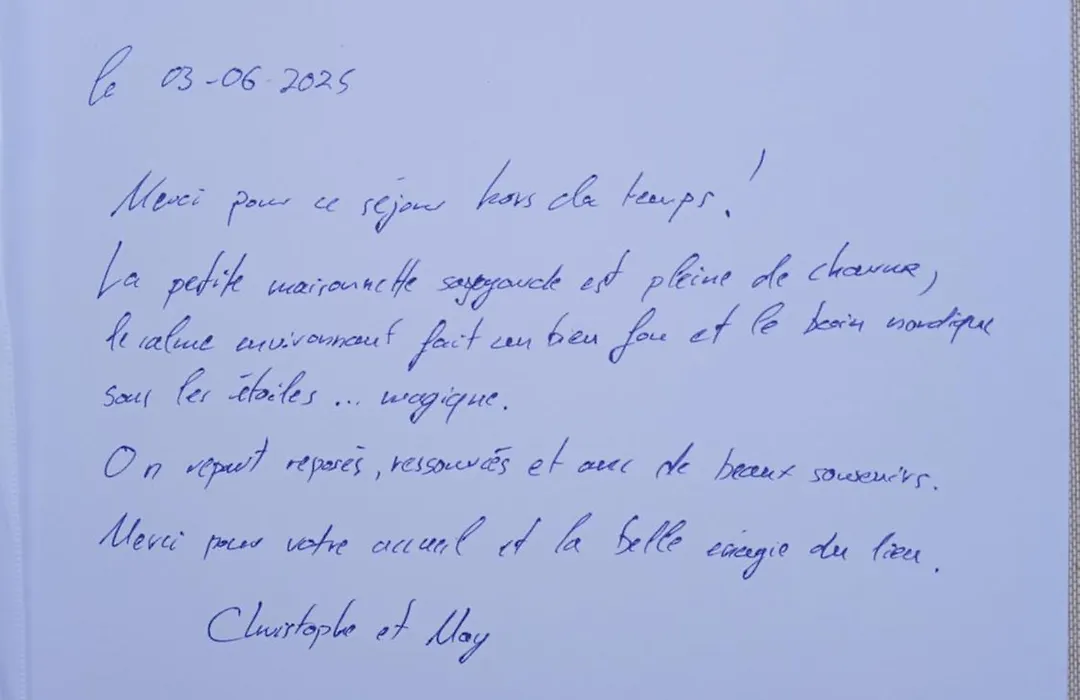 le 03-06-2025
Merci pour ce séjour hors du temps !
La petite maisonnette est pleine de charme,
le calme environnant fait un bien fou et le bain nordique
sous les étoiles ... magique.
On repart reposés, ressourcés et avec de beaux souvenirs.
Merci pour votre accueil et la belle énergie du lieu.
Christophe et May